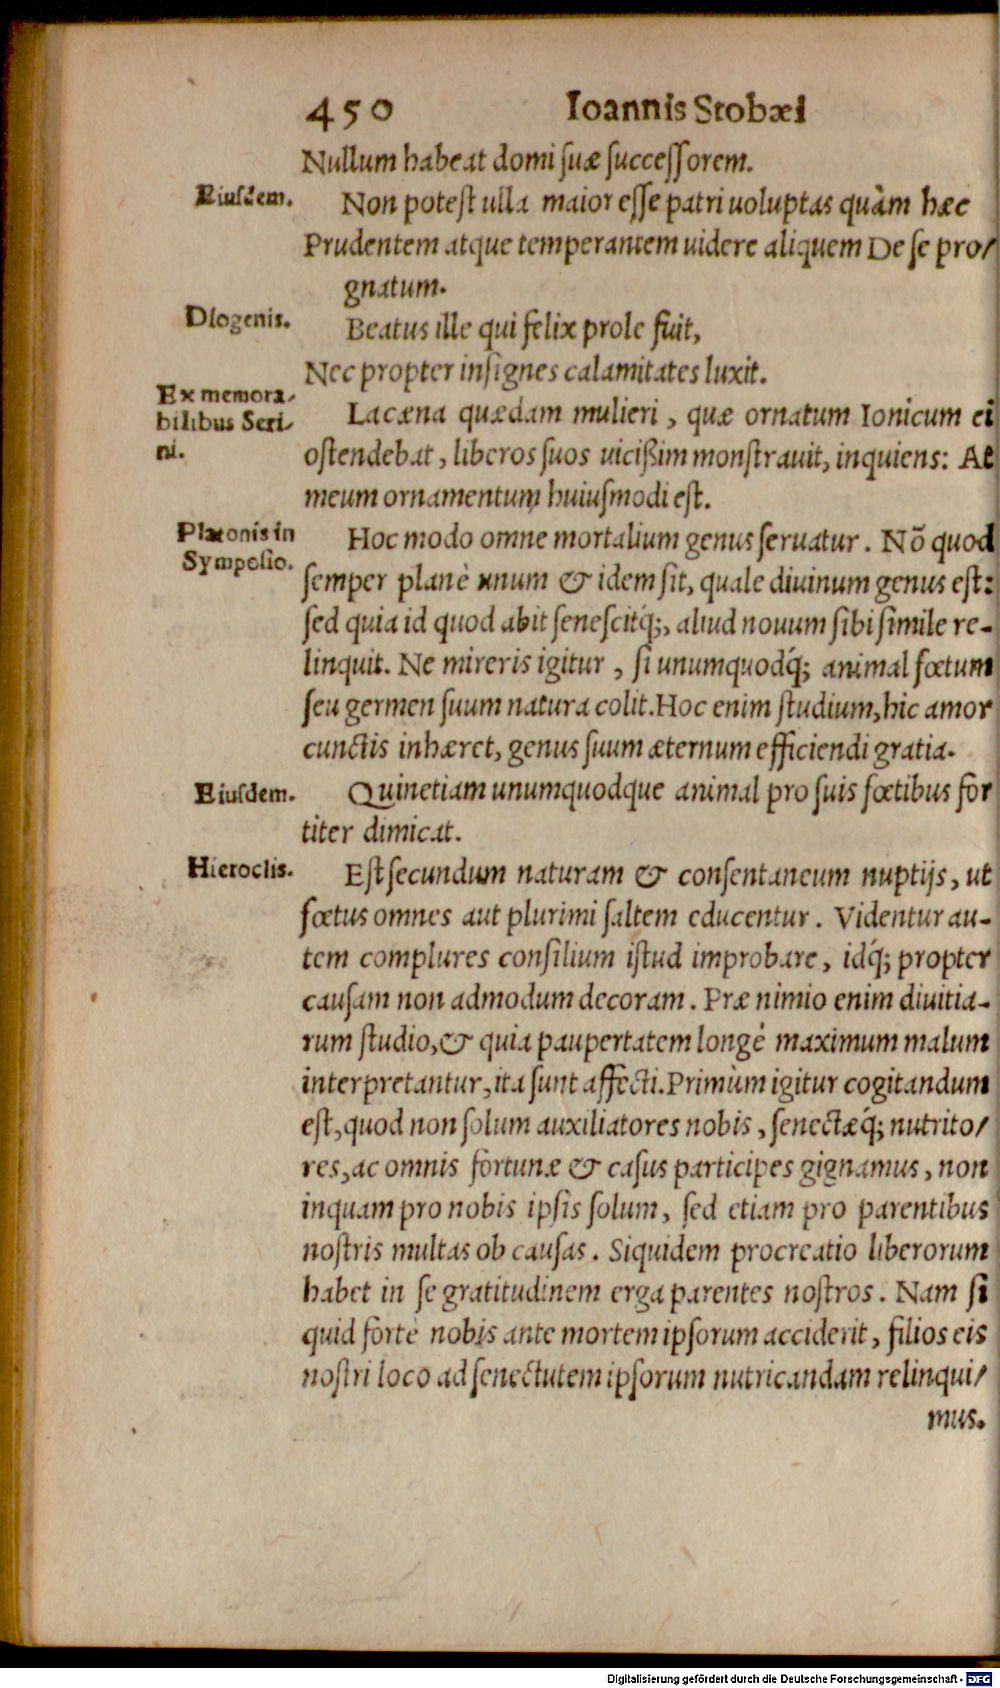 450 Ioannis Stobæi
Nullum habeat domi ſuæ ſucceſſorem.
Eiuſdem. Non poteſt ulla maior eſſe patri uoluptas quàm hæc
Prudentem atque temperantem uidere aliquem De ſe pro/
gnatum.
Diogenis. Beatus ille qui felix prole fuit,
Nec propter inſignes calamitates luxit.
Ex memora/
bilibus Seri/
ni.
Lacæna quædam mulieri, quæ ornatum Ionicum ei
oſtendebat, liberos ſuos uicißim monſtrauit, inquiens: At
meum ornamentum huiuſmodi eſt.
Platonis in
Sympoſio.
Hoc modo omne mortalium genus ſeruatur. Nõ quod
ſemper planè unum & idem ſit, quale diuinum genus eſt:
ſed quia id quod abit ſeneſcitq́;, aliud nouum ſibi ſimile re-
linquit. Ne mireris igitur, ſi unumquodq́; animal fœtum
ſeu germen ſuum natura colit. Hoc enim ſtudium, hic amor
cunctis inhæret, genus ſuum æternum efficiendi gratia.
Eiuſdem. Quinetiam unumquodque animal pro ſuis fœtibus for
titer dimicat.
Hieroclis. Eſt ſecundum naturam & conſentaneum nuptijs, ut
fœtus omnes aut plurimi ſaltem educentur. Videntur au-
tem complures conſilium iſtud improbare, idq́; propter
cauſam non admodum decoram. Præ nimio enim diuitia-
rum ſtudio, & quia paupertatem longè maximum malum
interpretantur, ita ſunt affecti. Primùm igitur cogitandum
eſt, quod non ſolum auxiliatores nobis, ſenectæq́; nutrito/
res, ac omnis fortunæ & caſus participes gignamus, non
inquam pro nobis ipſis ſolum, ſed etiam pro parentibus
noſtris multas ob cauſas. Siquidem procreatio liberorum
habet in ſe gratitudinem erga parentes noſtros. Nam ſi
quid fortè nobis ante mortem ipſorum acciderit, filios eis
noſtri loco ad ſenectutem ipſorum nutricandam relinqui/
mus.
Digitalisierung gefördert durch die Deutsche Forschungsgemeinschaft - DFG